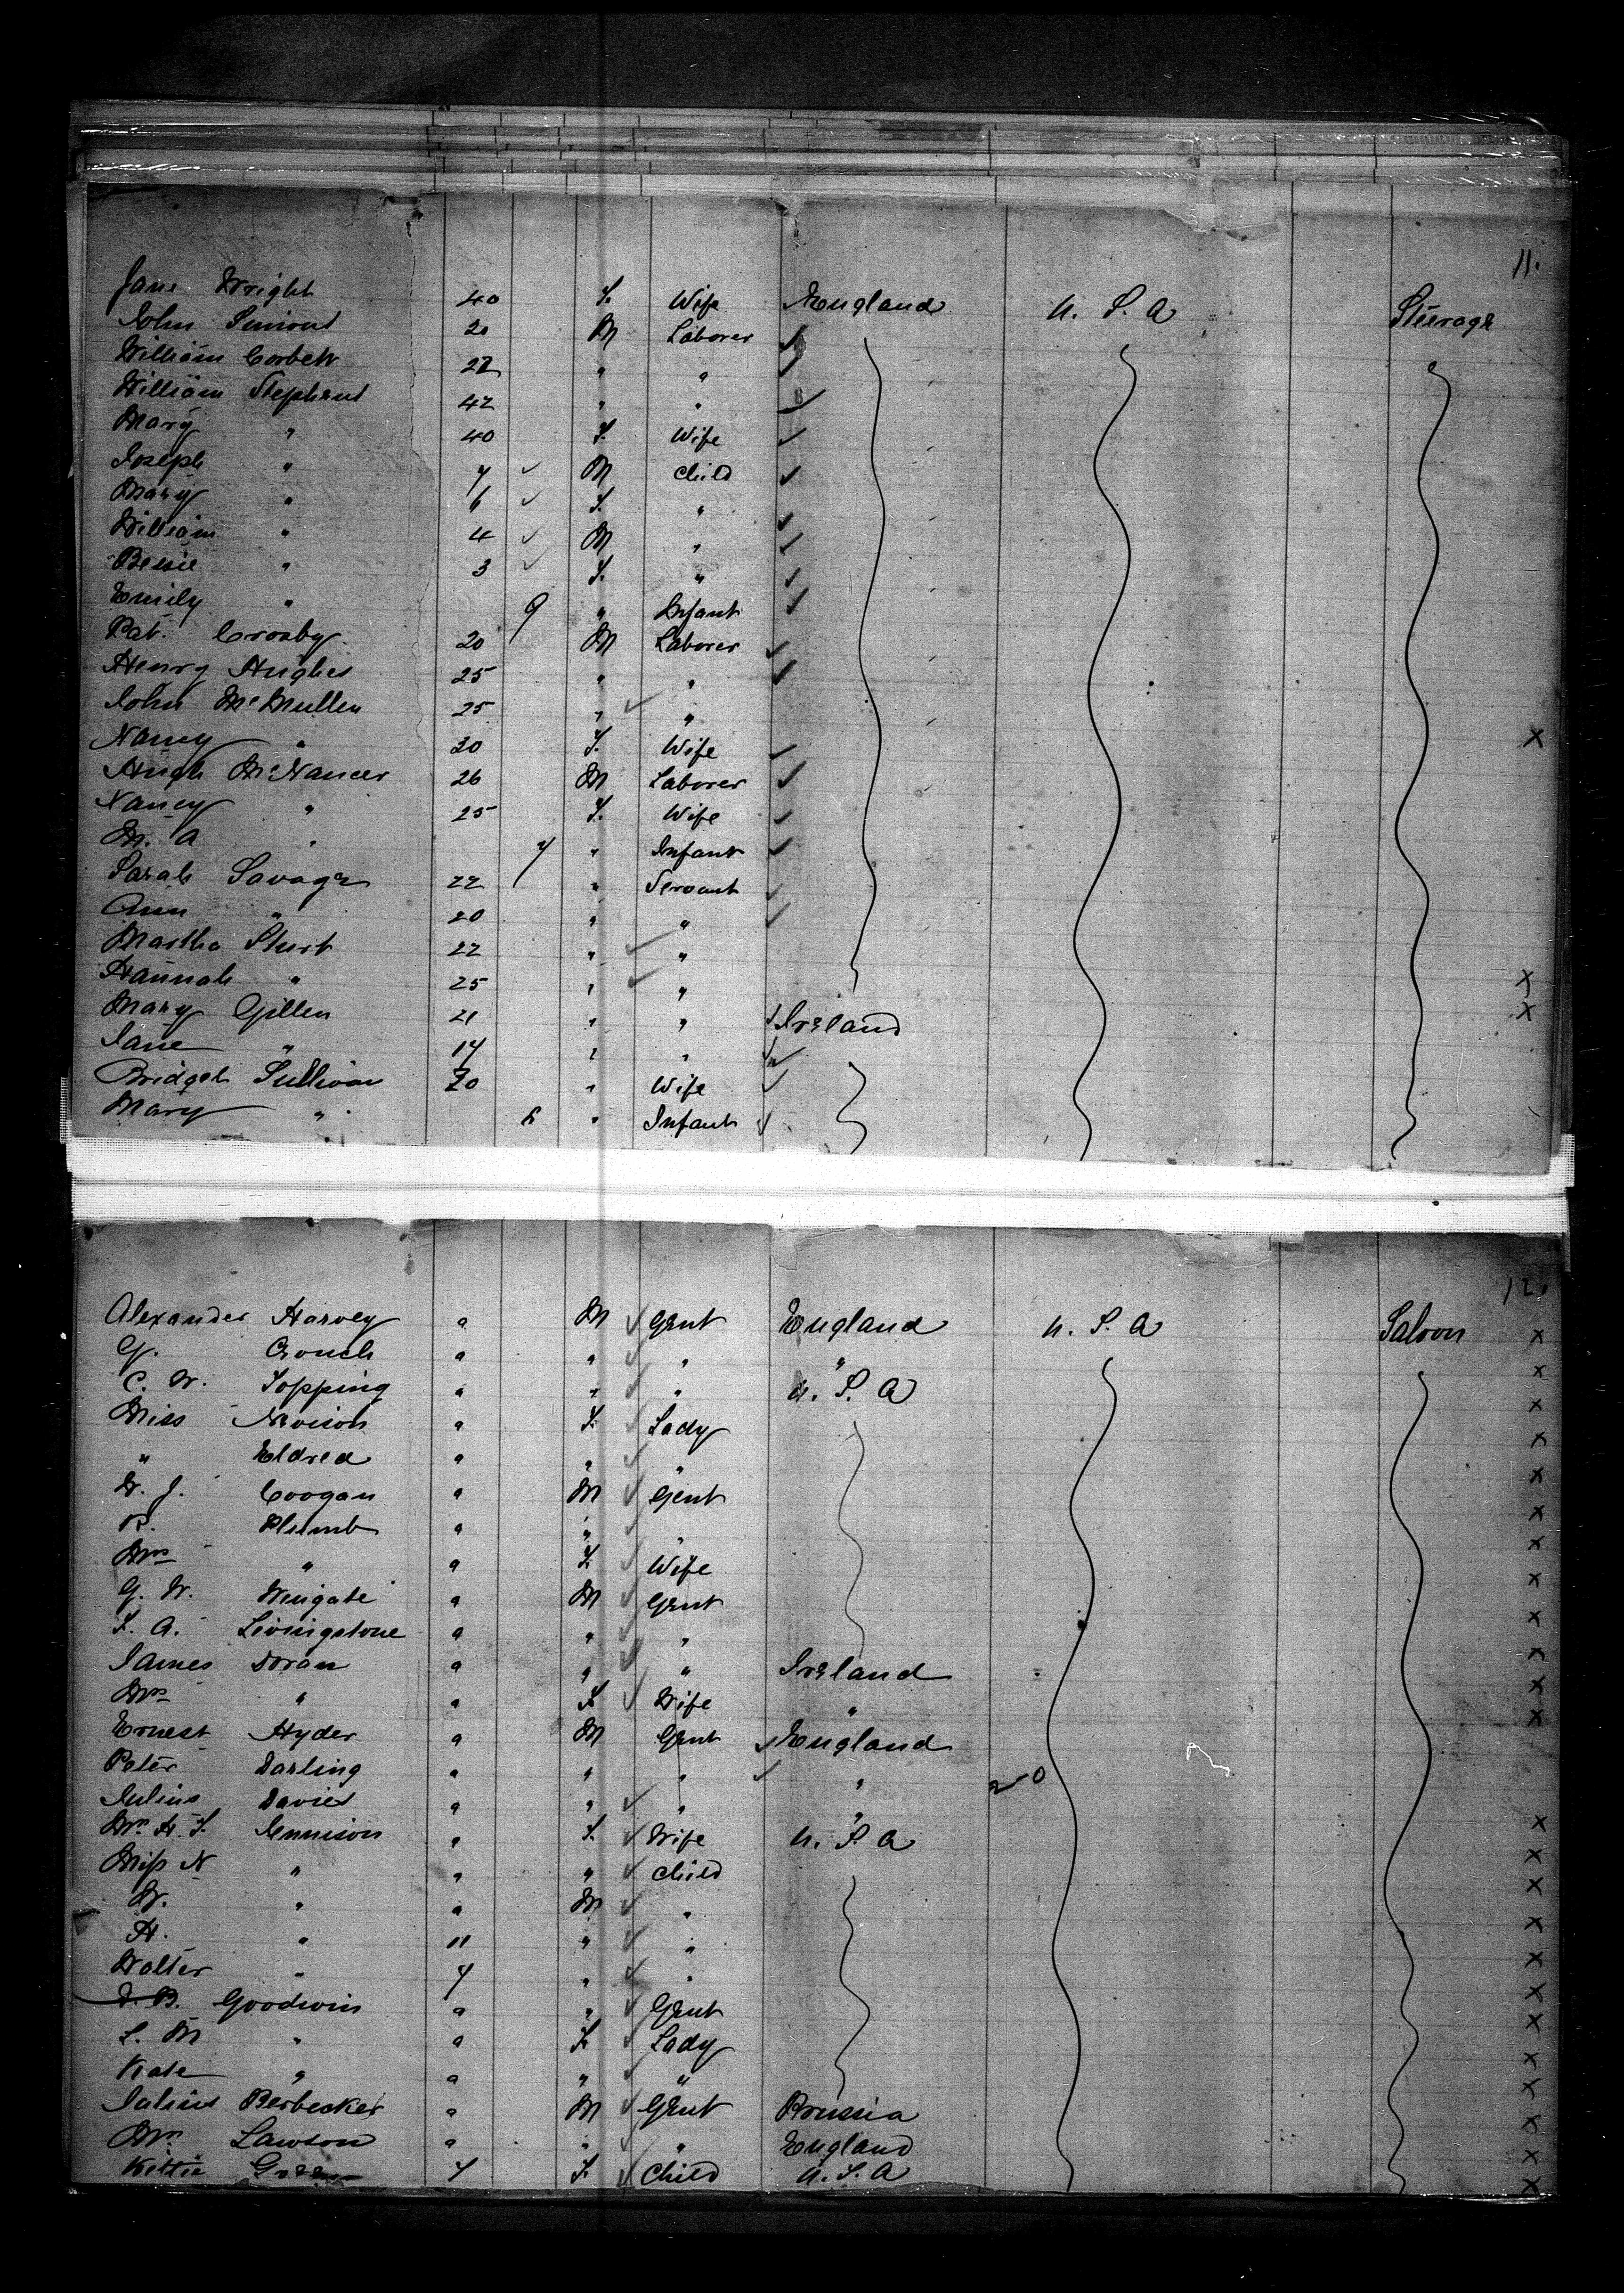 11.
Jane Wright 40 F. Wife England U. S. A Steerage
John Simons 20 M Laborer
William Corbett 22 " "
William Stephens 42 " "
Mary " 40 F. Wife
Joseph " 7 M Child
Mary " 6 F. "
William " 4 M "
Bessie " 3 F. "
Emily " 9 " Infant
Pat. Crosby 20 M Laborer
Henry Hughes 25 " "
John McMullen 25 " "
Nancy " 20 F. Wife X
Hugh 26 M Laborer
Nancy " 25 F. Wife
M. A " 7 " Infant
Sarah Savage 22 " Servant
Ann " 20 " "
Martha 22 " "
Hannah " 25 " " X
Mary Gillen 21 " " Ireland X
Jane " 17 " "
Bridget Sullivan 20 " Wife
Mary " 6 " Infant
12.
Alexander Harvey a M Gent England U. S. A Saloon X
G. Crouch a " " " X
C. W. Topping a " " U. S. A X
Miss Nevison a F. Lady X
" Eldred a " " X
W. J. Coogan a M Gent X
R. Plumb a " " X
Mrs " a F. Wife X
G. W. Wingate a M Gent X
L. A. Livingstone a " " X
James Doran a " " Ireland X
Mrs " a F. Wife " X
Ernest Hyder a M Gent England
Peter Darling a " " " 20
Julius Davies a " " " X
Mrs H. F. Jennison a F. Wife U. S. A X
Miss N " a " Child X
W. " a M " X
H. " 11 " " X
Walter " 7 " " X
J. B. Goodwin a " Gent X
L. M " a F. Lady X
Kate " a " " X
Julius Berbecker a M Gent Prussia X
Lawson a " " England X
Kittie Green 7 F. Child U. S. A X